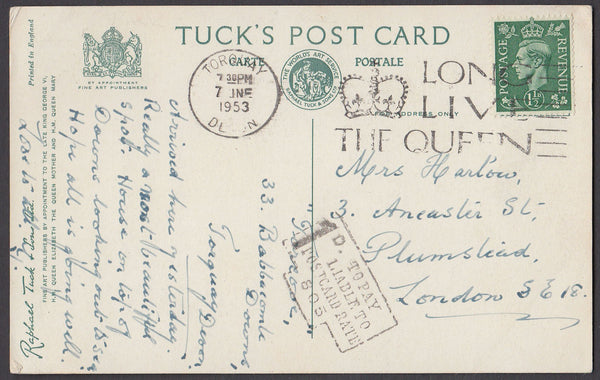 TUCK'S POST CARD
CARTE POSTALE
BY APPOINTMENT
FINE ART PUBLISHERS
THE WORLD'S ART SERVICE
RAPHAEL TUCK & SONS LTD
ADDRESS ONLY
Printed in England
Raphael Tuck & Sons Ltd.
FINE ART PUBLISHERS BY APPOINTMENT TO THE LATE KING GEORGE VI,
H.M. QUEEN ELIZABETH THE QUEEN MOTHER AND H.M. QUEEN MARY
TORQUAY
7.30PM
7 JNE
1953
DEVON
LONG
LIVE
THE QUEEN
POSTAGE
REVENUE
1½D
33. Babbacombe
Downs
Torquay Devon
Arrived here yesterday
Really a most beautiful
spot. House on top of
Downs looking out to sea
Hope all is going well.
Love to all
Mrs Harlow,
3. Ancaster St,
Plumstead,
London S E 18.
1D. TO PAY
LIABLE TO
POSTCARD RATE
805